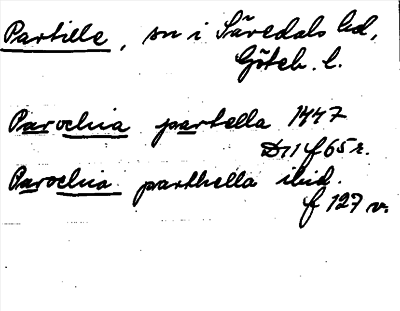 Partille, sn i Sävedals hd,
Göteb. l.
Parochia partella 1447
D 11 f 65 r.
Parochia parthella ibid.
f 127 v.